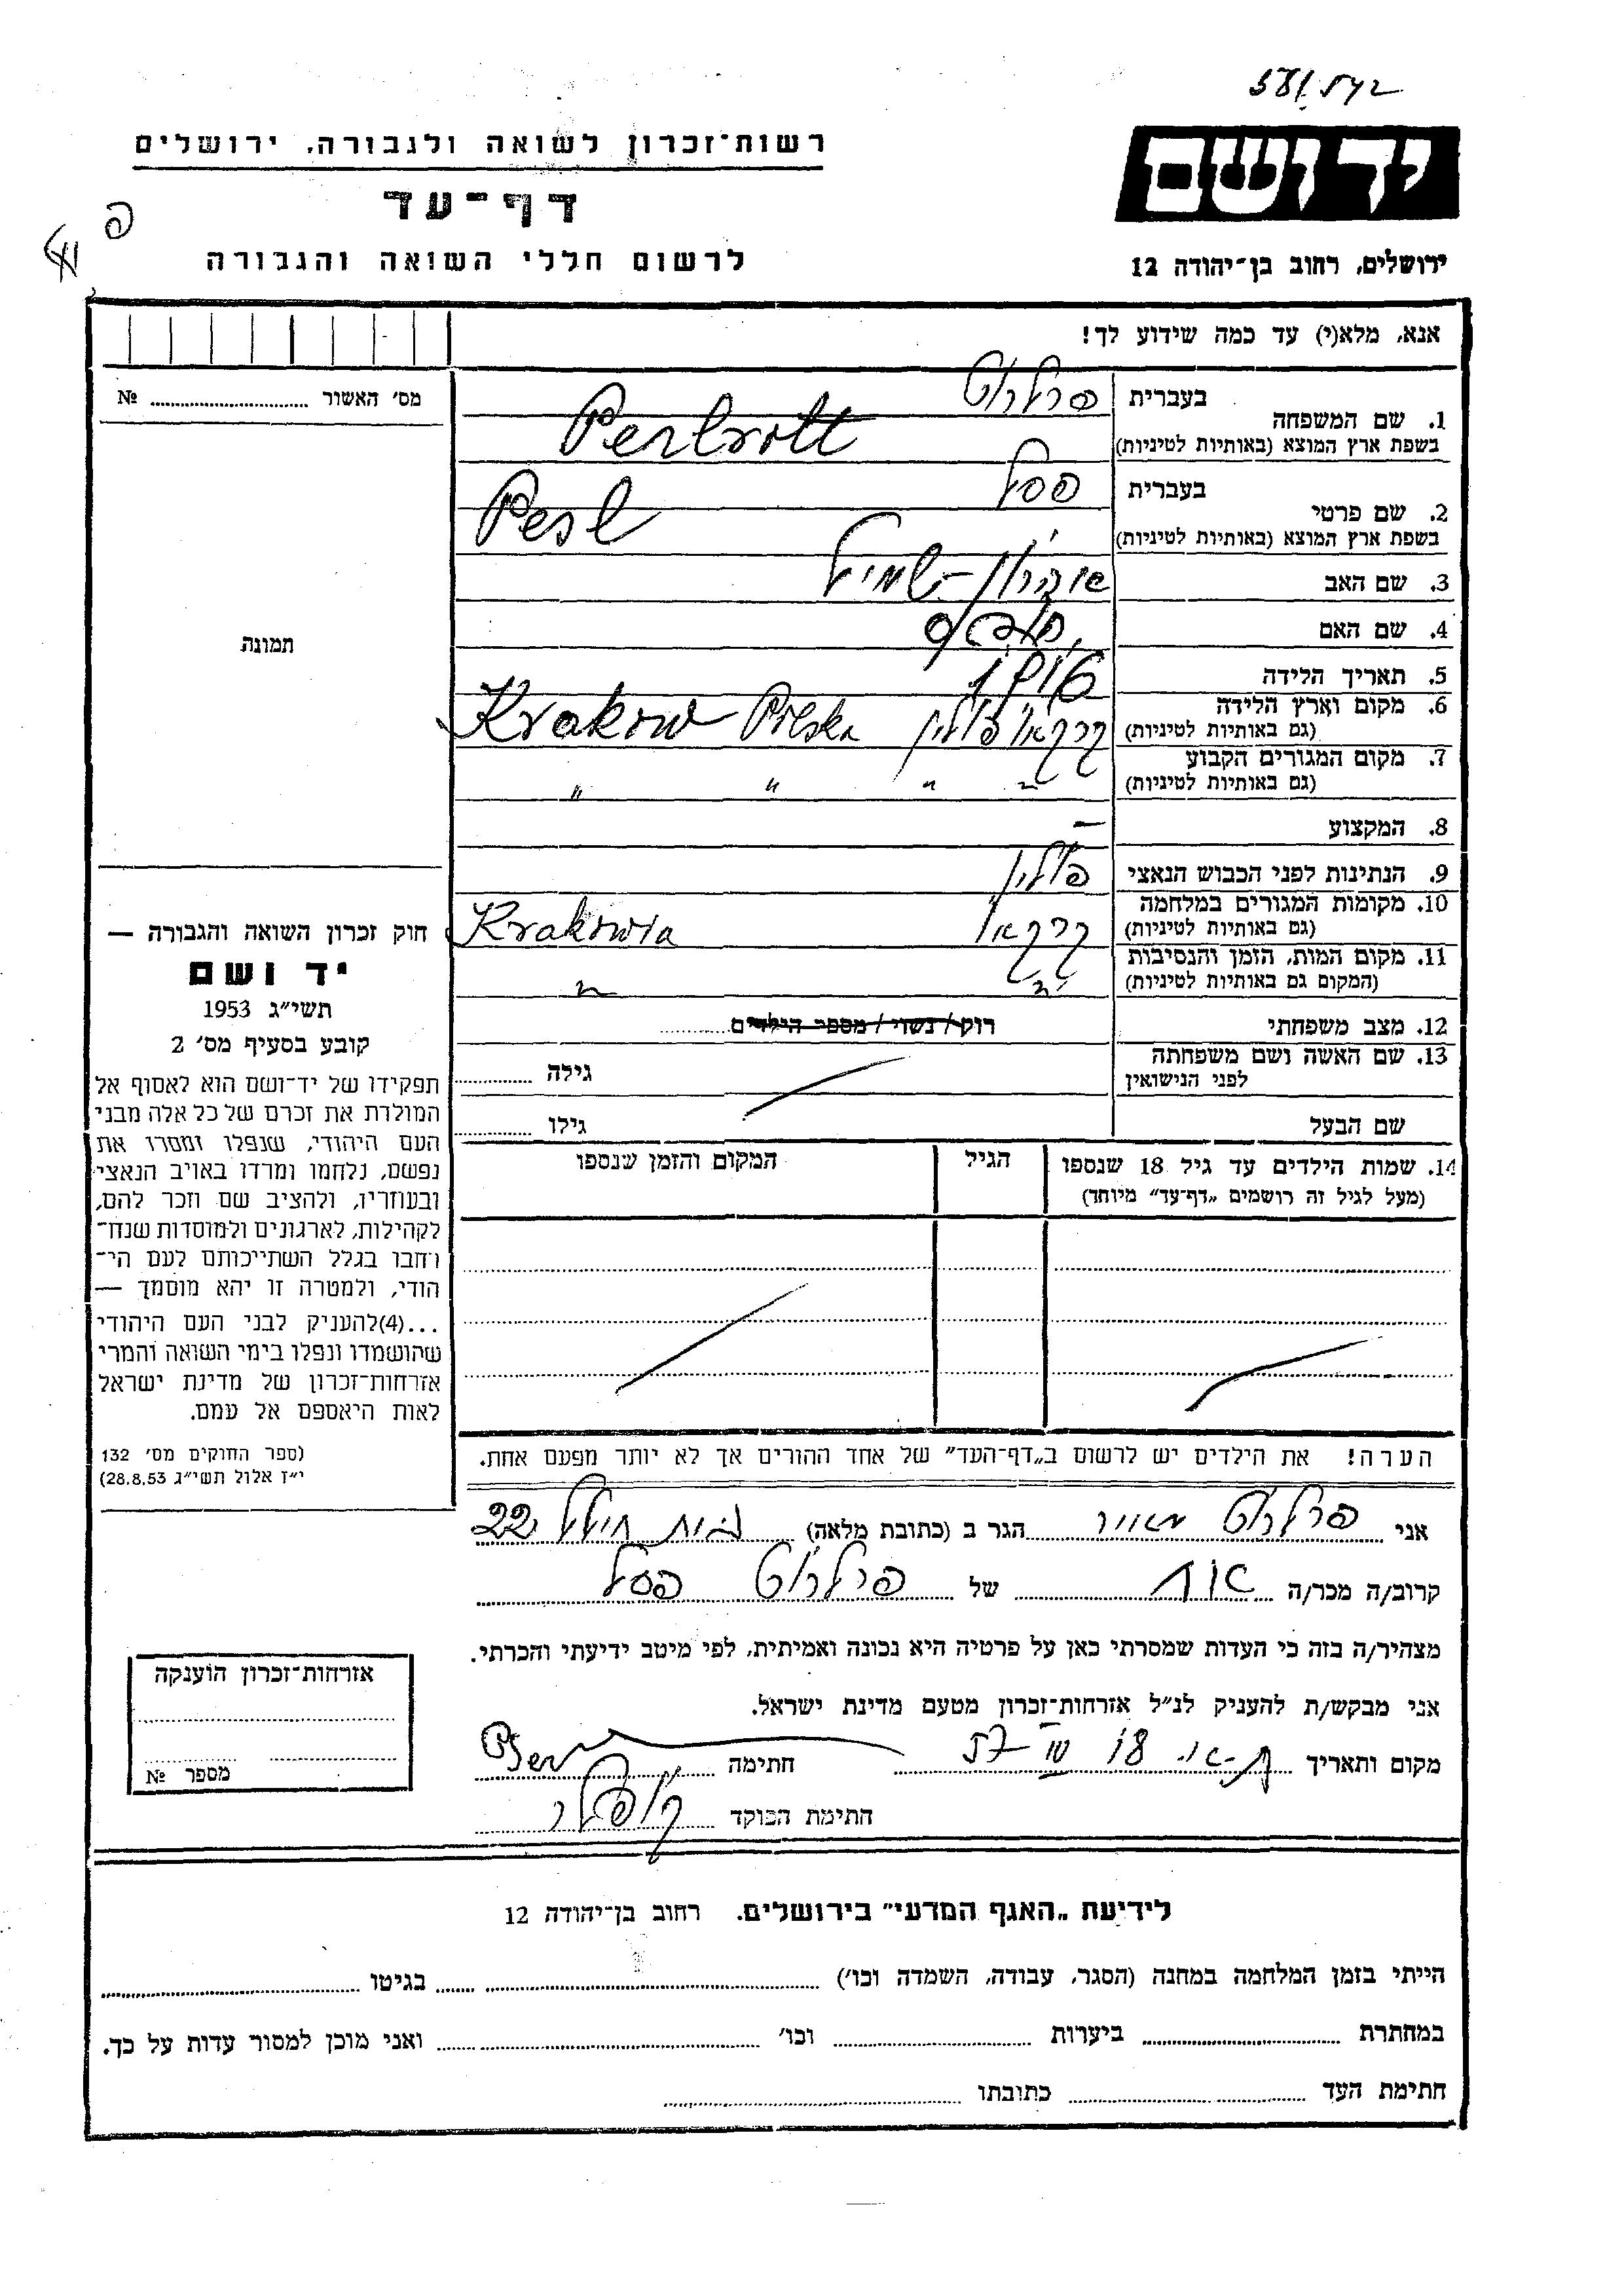 רשות־זכרון לשואה ולגבורה, ירושלים
דף־עד
לרשום חללי השואה והגבורה
יד ושם
ירושלים, רחוב בן־יהודה 12
פ
אנא, מלא(י) עד כמה שידוע לך!
מס׳ האשור ........ №
תמונה
1. שם המשפחה
בעברית פרלרוט
בשפת ארץ המוצא (באותיות לטיניות) Perlrott
2. שם פרטי
בעברית פסל
בשפת ארץ המוצא (באותיות לטיניות) Pesl
3. שם האב אהרון-שמואל
4. שם האם
5. תאריך הלידה
6. מקום וארץ הלידה
(גם באותיות לטיניות) קרקאו פולין Krakow Polska
7. מקום המגורים הקבוע
(גם באותיות לטיניות) " " " "
8. המקצוע —
9. הנתינות לפני הכבוש הנאצי פולין
10. מקומות המגורים במלחמה
(גם באותיות לטיניות) קרקאו Krakowia
11. מקום המות, הזמן והנסיבות
(המקום גם באותיות לטיניות) " "
12. מצב משפחתי רוק/נשוי/מספר הילדים........
13. שם האשה ושם משפחתה
לפני הנישואין גילה ........
שם הבעל גילו ........
14. שמות הילדים עד גיל 18 שנספו
(מעל לגיל זה רושמים „דף־עד״ מיוחד)
הגיל
המקום והזמן שנספו
חוק זכרון השואה והגבורה —
יד ושם
תשי״ג 1953
קובע בסעיף מס׳ 2
תפקידו של יד־ושם הוא לאסוף אל
המולדת את זכרם של כל אלה מבני
העם היהודי, שנפלו ומסרו את
נפשם, נלחמו ומרדו באויב הנאצי
ובעוזריו, ולהציב שם וזכר להם,
לקהילות, לארגונים ולמוסדות שנח־
רחבו בגלל השתייכותם לעם הי־
הודי, ולמטרה זו יהא מוסמך —
...(4)להעניק לבני העם היהודי
שהושמדו ונפלו בימי השואה והמרי
אזרחות־זכרון של מדינת ישראל
לאות היאספם אל עמם.
(ספר החוקים מס׳ 132
י״ז אלול תשי״ג 28.8.53)
הערה! את הילדים יש לרשום ב„דף־העד״ של אחד ההורים אך לא יותר מפעם אחת.
אני פרלרוט מאיר הגר ב (כתובת מלאה) 22
קרוב/ה מכר/ה אח של פרלרוט פסל
מצהיר/ה בזה כי העדות שמסרתי כאן על פרטיה היא נכונה ואמיתית, לפי מיטב ידיעתי והכרתי.
אני מבקש/ת להעניק לנ״ל אזרחות־זכרון מטעם מדינת ישראל.
מקום ותאריך ת-א חתימה
חתימת הפוקד
אזרחות־זכרון הוענקה
מספר №
לידיעת „האגף המדעי״ בירושלים. רחוב בן־יהודה 12
הייתי בזמן המלחמה במחנה (הסגר, עבודה, השמדה וכו׳) ........ בגיטו ........
במחתרת ........ ביערות ........ וכו׳ ........ ואני מוכן למסור עדות על כך.
חתימת העד ........ כתובתו ........